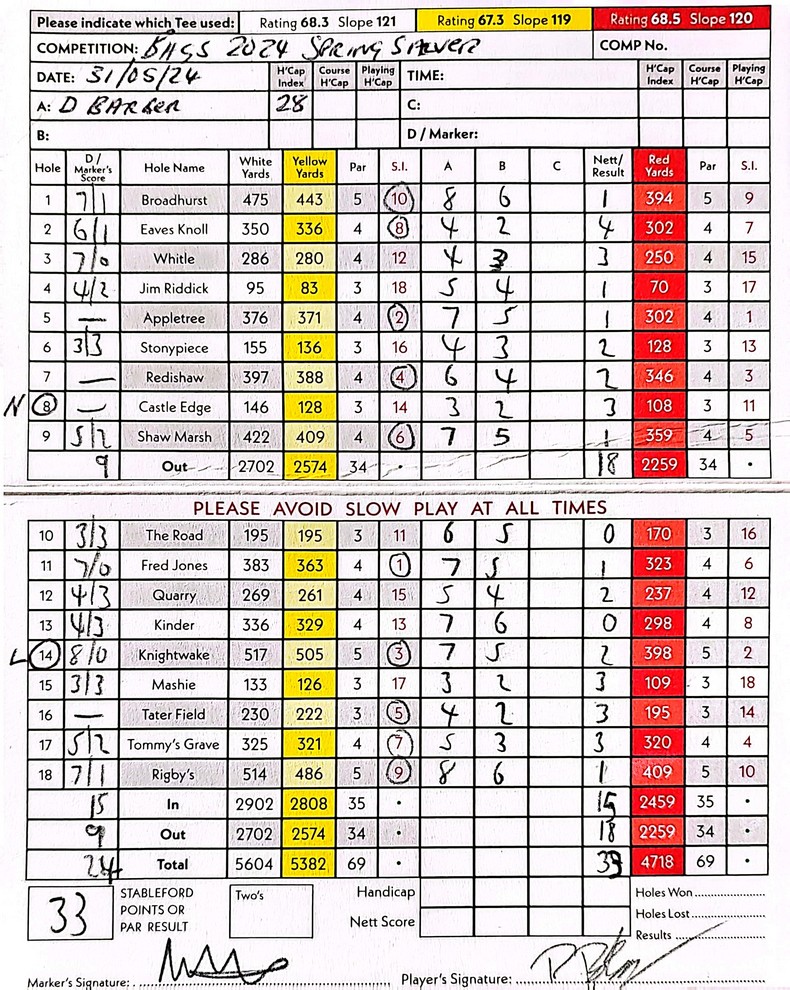 Please indicate which Tee used: Rating 68.3 Slope 121 Rating 67.3 Slope 119 Rating 68.5 Slope 120
COMPETITION: BAGS 2024 SPRING COMP No.
DATE: 31/05/24 H'Cap Index Course H'Cap Playing H'Cap TIME: H'Cap Index Course H'Cap Playing H'Cap
A: D BARBER 28 C:
B: D / Marker:
Hole D / Marker's Score Hole Name White Yards Yellow Yards Par S.I. A B C Nett/ Result Red Yards Par S.I.
1 7/1 Broadhurst 475 443 5 10 8 6 1 394 5 9
2 6/1 Eaves Knoll 350 336 4 8 4 2 4 302 4 7
3 7/0 Whitle 286 280 4 12 4 3 3 250 4 15
4 4/2 Jim Riddick 95 83 3 18 5 4 1 70 3 17
5 — Appletree 376 371 4 2 7 5 1 302 4 1
6 3/3 Stonypiece 155 136 3 16 4 3 2 128 3 13
7 — Redishaw 397 388 4 4 6 4 2 346 4 3
N 8 — Castle Edge 146 128 3 14 3 2 3 108 3 11
9 5/2 Shaw Marsh 422 409 4 6 7 5 1 359 4 5
9 Out 2702 2574 34 • 18 2259 34 •
PLEASE AVOID SLOW PLAY AT ALL TIMES
10 3/3 The Road 195 195 3 11 6 5 0 170 3 16
11 7/0 Fred Jones 383 363 4 1 7 5 1 323 4 6
12 4/3 Quarry 269 261 4 15 5 4 2 237 4 12
13 4/3 Kinder 336 329 4 13 7 6 0 298 4 8
L 14 8/0 Knightwake 517 505 5 3 7 5 2 398 5 2
15 3/3 Mashie 133 126 3 17 3 2 3 109 3 18
16 — Tater Field 230 222 3 5 4 2 3 195 3 14
17 5/2 Tommy's Grave 325 321 4 7 5 3 3 320 4 4
18 7/1 Rigby's 514 486 5 9 8 6 1 409 5 10
15 In 2902 2808 35 • 15 2459 35 •
9 Out 2702 2574 34 • 18 2259 34 •
24 Total 5604 5382 69 • 33 4718 69 •
33 STABLEFORD POINTS OR PAR RESULT Two's Handicap Holes Won
Nett Score Holes Lost
Results
Marker's Signature: Player's Signature: